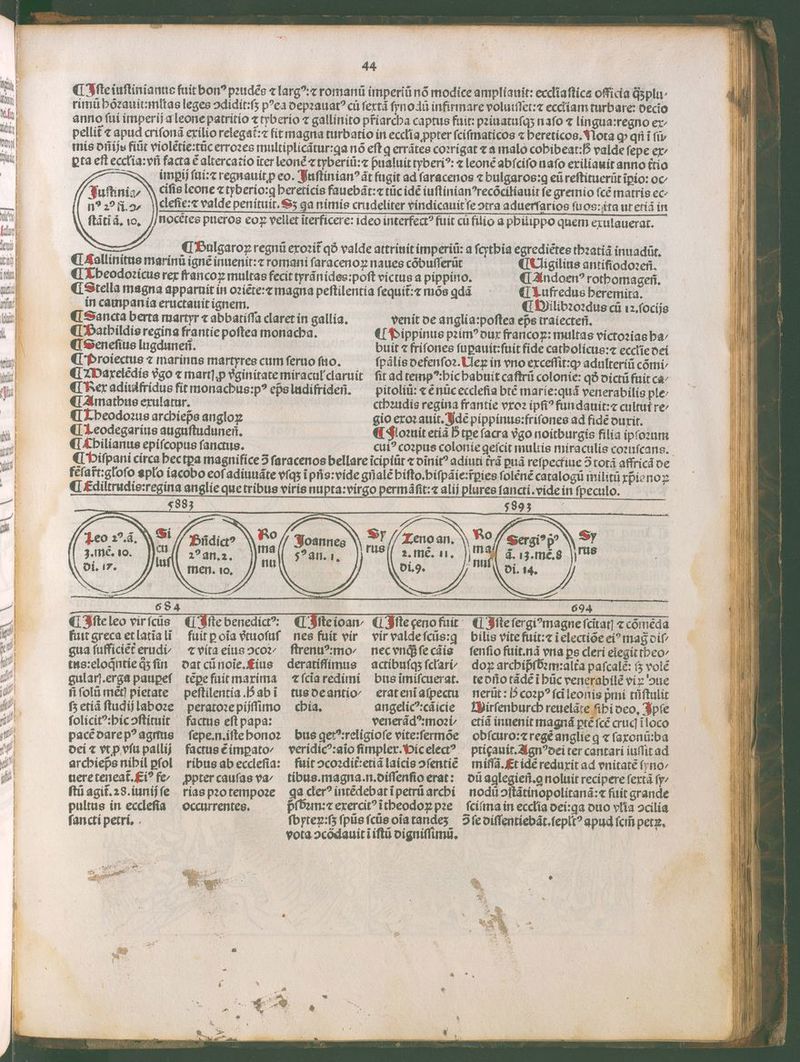 44
¶ Iste iustinianus fuit bonꝰ prudēs ⁊ largꝰ:⁊ romanū imperiū nō modice ampliauit: eccliastica officia q̄ȝ plu-
rimū hōrauit:mltas leges ↄdidit:sȝ pꝰea deprauatꝰ cū sextā synodū infirmare voluisset:⁊ eccliam turbare: decīo
anno sui imperij a leone patritio ⁊ tyberio ⁊ gallinito pr̄iarcha captus fuit: priuatusqȝ naso ⁊ lingua:regno ex-
pellit̄ ⁊ apud crisonā exilio relegat̄:⁊ fit magna turbatio in ecclīa ꝓpter scismaticos ⁊ hereticos. Nota ꝙ qn̄ ī sū-
mis dn̄ijs fiūt violētie:tūc errores multiplicātur:qa nō est q errātes corrigat ⁊ a malo cohibeat:h̄ valde sepe ex-
ꝑta est ecclīa:vn̄ facta ē altercatio īter leonē ⁊ tyberiū:⁊ p̄ualuit tyberiꝰ: ⁊ leonē absciso naso exiliauit anno t̄tio
impij sui:⁊ regnauit ꝓ eo. Iustinianꝰ āt fugit ad saracenos ⁊ bulgaros:q eū restituerūt īpio: oc-
cisis leone ⁊ tyberio:q hereticis fauebāt:⁊ tūc idē iustinianꝰ recōciliauit se gremio scē matris ec-
clesie:⁊ valde penituit. Sȝ qa nimis crudeliter vindicauit se ↄtra aduersarios suos:ita ut etiā in
nocētes pueros eoꝝ vellet īterficere: ideo interfectꝰ fuit cū filio a philippo quem exulauerat.
Iustinia-
nꝰ 2ꝰ fi. ↄ-
stāti ā. 10.
¶ Bulgaroꝝ regnū exorit̄ qð valde attriuit imperiū: a scythia egrediētes thratiā inuadūt.
¶ Gallinitus marinū ignē inuenit:⁊ romani saracenoꝝ naues cōbusserūt
¶ Theodoricus rex francoꝝ multas fecit tyrānides:post victus a pippino.
¶ Stella magna apparuit in oriēte:⁊ magna pestilentia sequit̄:⁊ mōs qdā
in campania eructauit ignem.
¶ Sancta berta martyr ⁊ abbatissa claret in gallia.
¶ Bathildis regina frantie postea monacha.
¶ Genesius lugdunen̄.
¶ Proiectus ⁊ marinus martyres cum seruo suo.
¶ Maxelēdis v̄go ⁊ mart] ꝓ v̄ginitate miracul' claruit
¶ Rex adiulfridus fit monachus:pꝰ ep̄s ludisriden̄.
¶ Amathus exulatur.
¶ Theodorus archiep̄s angloꝝ
¶ Leodegarius augustudunen̄.
¶ Chilianus episcopus sanctus.
¶ Vigilius antisiodoren̄.
¶ Andoenꝰ rothomagen̄.
¶ Lufredus heremita.
¶ Wilibrordus cū 12. socijs
venit de anglia:postea ep̄s traiecten̄.
¶ Pippinus primꝰ dux francoꝝ: multas victorias ha-
buit ⁊ frisones suꝑauit:fuit fide catholicus:⁊ ecclīe dei
sp̄alis defensor. Uerꝝ in vno excessit:ꝙ adulteriū cōmi-
sit ad tempꝰ:hic habuit castrū colonie: qð dictū fuit ca-
pitoliū: ⁊ ē nūc ecclesia btē marie:quā venerabilis ple-
cthrudis regina frantie vxor ipsiꝰ fundauit:⁊ cultui re-
gio exorauit. Idē pippinus:frisones ad fidē duxit.
¶ Floruit etiā h̄ tꝑe sacra v̄go noitburgis filia ipsorum
cuiꝰ corpus colonie qescit multis miraculis coruscans.
¶ Hispani circa hec tꝑa magnifice ↄ̄ saracenos bellare īcipiūt ⁊ dīnitꝰ adiuti
¶ Ediltrudis:regina anglie que tribus viris nupta:virgo permāsit:⁊ alij plures sancti.vide in speculo.
5883 5893
Leo 2ꝰ.ā.
3.mē. 10.
di. 17.
Si
cu
lus
Bn̄dictꝰ
2ꝰ an.2.
men. 10.
Ro
ma
nu
Joannes
5ꝰ an. 1.
Sy
rus
Zeno an.
2. mē. 11.
di.9.
Ro
ma
nus
Sergiꝰ pꝰ
ā. 13.mē.8
di. 14.
Sy
rus
684 694
¶ Iste leo vir scūs
fuit greca et latīa lī
gua sufficiēt̄ erudi-
tus:eloqntie q̄ȝ sin
gular].erga pauꝑes
n̄ solū mēt] pietate
sȝ etiā studij labore
solicitꝰ:hic ↄstituit
pacē dare pꝰ agnus
dei ⁊ vt ꝓ vsu pallij
archiep̄s nihil ꝑsol
uere teneat̄. Eiꝰ fe-
stū agit̄.28.iunij se
pultus in ecclesia
sancti petri.
¶ Iste benedictꝰ:
fuit ꝑ oīa v̄tuosus
⁊ vita eius ↄcor-
dat cū noīe. Eius
tēꝑe fuit maxima
pestilentia. h̄ ab ī
peratore pijssimo
factus est papa:
sepe.n.iste honor
factus ē impato-
ribus ab ecclesia:
ꝓpter causas va-
rias pro tempore
occurrentes.
¶ Iste ioan-
nes fuit vir
strenuꝰ:mo-
deratissimus
⁊ scīa redimi
tus de antio-
chia.
¶ Iste çeno fuit
vir valde scūs:q
nec vnq̄ȝ se cāis
actibusqȝ sclāri-
bus īmiscuerat.
erat enī aspectu
angelicꝰ:cā icie
venerādꝰ:mori-
bus qetꝰ:religiose vite:sermōe
veridicꝰ:aīo simplex. Hic electꝰ
fuit ↄcorditē:etiā laicis ↄsentiē
tibus.magna.n.dissensio erat:
qa clerꝰ intēdebat ī petrū archi
p̄sbm:⁊ exercitꝰ ī theodoꝝ pre
sbyteꝝ:sȝ spūs scūs oīa tandeȝ
vota ↄcōdauit ī istū dignissimū.
¶ Iste sergiꝰ magne scītat] ⁊ cōmēda
bilis vite fuit:⁊ ī electiōe eiꝰ mag̊ dis-
sensio fuit.nā vna ps cleri elegit theo-
doꝝ archip̄sbm:altea pascalē: sȝ volē
te dn̄o tādē ī hūc venerabilē viꝝ ↄue
nerūt: h̄ corpꝰ scī leonis p̄mi tn̄stulit
Wirsenburch reuelāte sibi deo. Ipse
etiā inuenit magnā ꝑtē scē cruc] ī loco
obscuro:⁊ regē anglie q ⁊ saxonū:ba
ptiçauit. Agnꝰ dei ter cantari iussit ad
missā. Et idē reduxit ad vnitatē syno-
dū aglegien̄.q noluit recipere sextā sy-
nodū ↄstātinopolitanā:⁊ fuit grande
scisma in ecclīa dei:qa duo vlīa ↄcilia
ↄ̄ se dissentiebāt.seplt̄ꝰ apud scm̄ petꝝ.